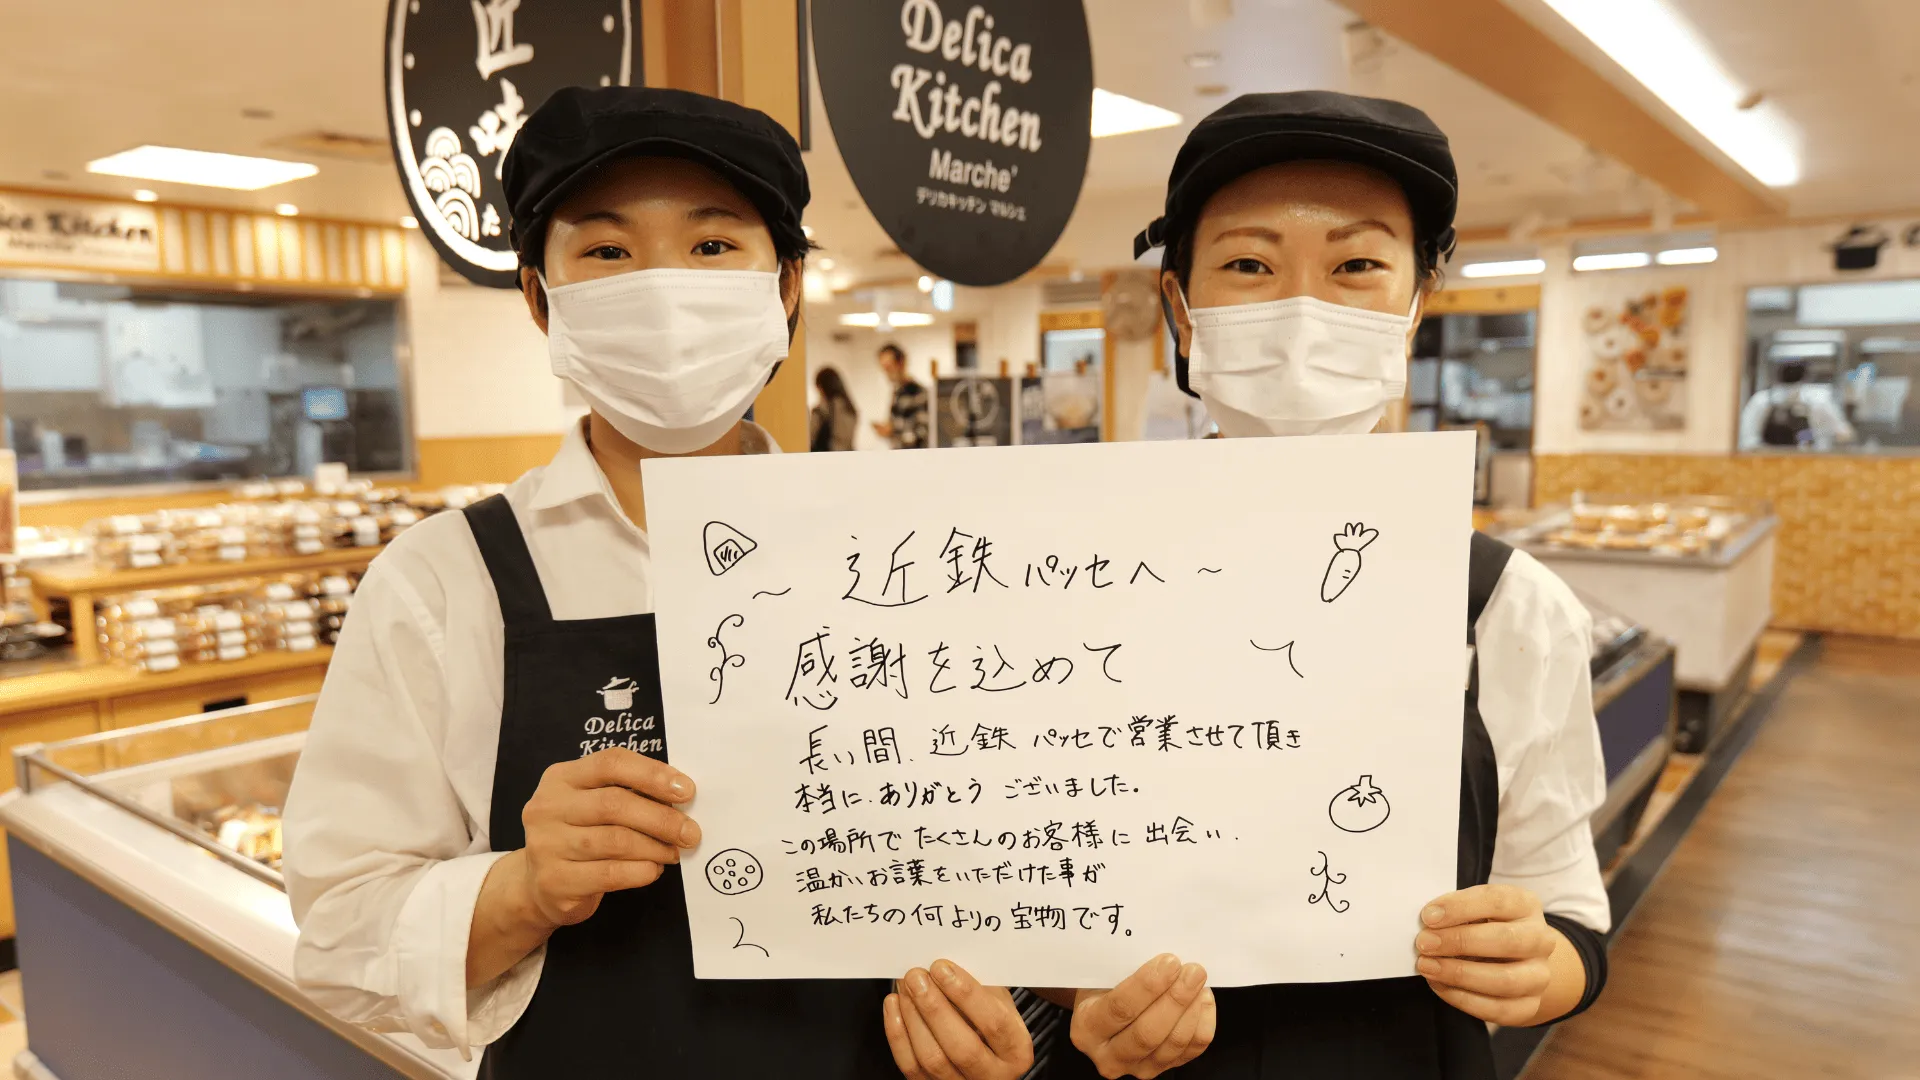 匠味
Delica
Kitchen
Marche'
デリカキッチン マルシェ
Kitchen
Marche'
Delica
Kitchen
～ 近鉄パッセへ ～
感謝を込めて
長い間、近鉄パッセで営業させて頂き
本当に、ありがとうございました。
この場所でたくさんのお客様に出会い、
温かいお言葉をいただけた事が
私たちの何よりの宝物です。